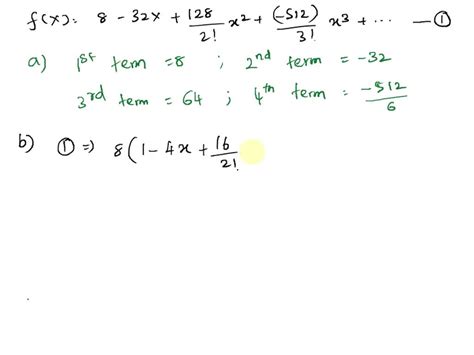 f(x): 8 - 32x + 128/2! x² + (-512)/3! x³ + ... — ①
a) 1st term = 8 ; 2nd term = -32
3rd term = 64 ; 4th term = -512/6
b) ① => 8(1 - 4x + 16/2!